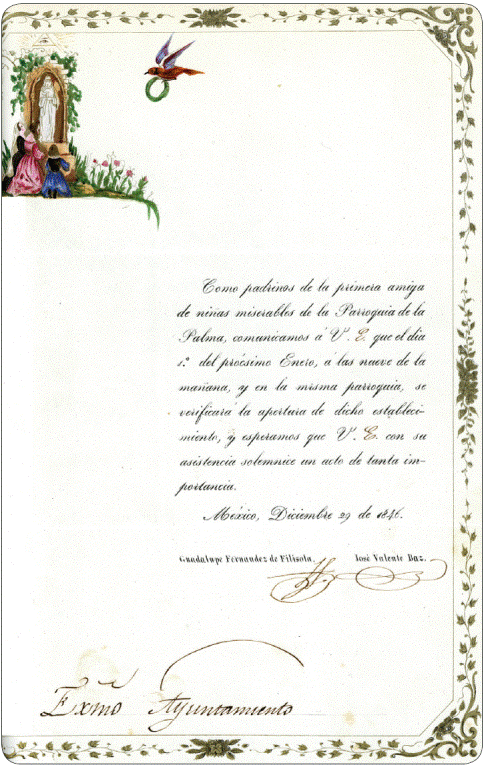 Como padrinos de la primera amiga
de niñas miserables de la Parroquia de la
Palma, comunicamos á V. E. que el dia
1.º del procsimo Enero, á las nueve de la
mañana, y en la misma parroquia, se
verificará la apertura de dicho estableci-
miento, y esperamos que V. E. con su
asistencia solemnice un acto de tanta im-
portancia.
México, Diciembre 29 de 1846.
Guadalupe Fernandez de Filisola. José Valente Baz.
Exmo Ayuntamiento